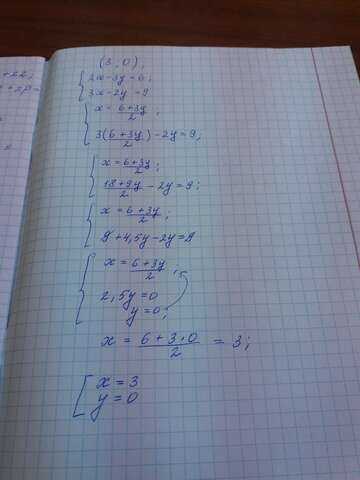 (3; 0);
2x-3y=6;
3x-2y=9
x=6+3y/2;
3(6+3y/2)-2y=9;
x=6+3y/2;
18+9y/2-2y=9;
x=6+3y/2;
9+4,5y-2y=9
x=6+3y/2;
2,5y=0
y=0;
x=6+3·0/2=3;
x=3
y=0